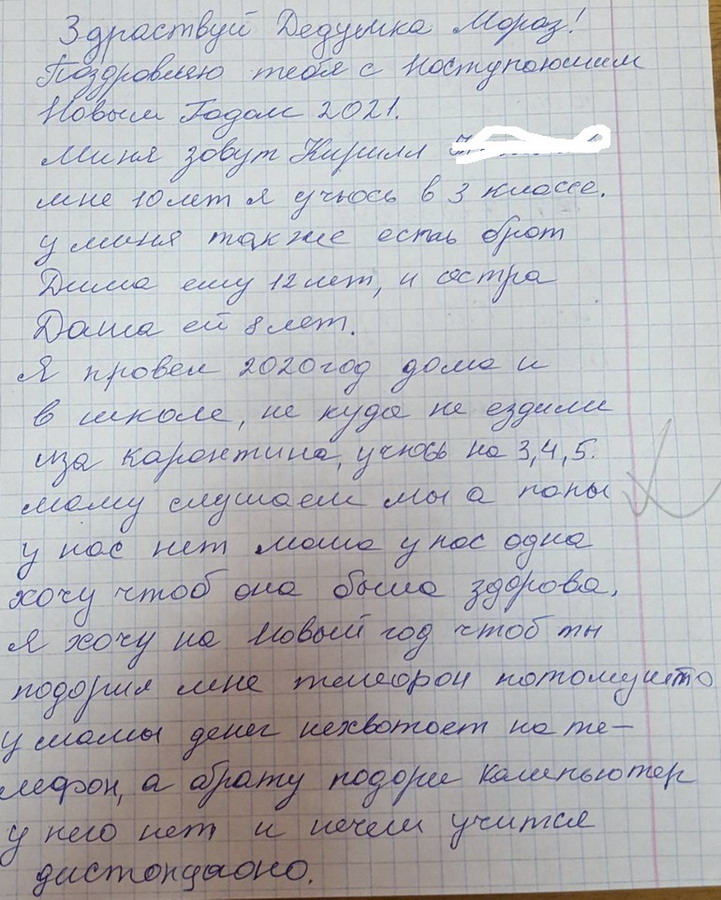 Здраствуй Дедушка Мороз!
Поздровляю тебя с Наступоюшим
Новым Годом 2021.
Миня зовут Кирилл
мне 10 лет я учюсь в 3 классе.
у миня также есть брот
Дима ему 12 лет, и состра
Даша ей 8 лет.
Я провел 2020 год дома и
в школе, не куда не ездили
иза каронтина, учюсь на 3,4,5.
маму слушаем мы а папы
у нас нет мама у нас одна
хочу чтоб она была здорова.
Я хочу на Новый год чтоб ты
подорил мне телефон потомушто
у мамы денег нехвотоет на те-
лефон, а абрату подори компьютер
у него нет и нечем учится
дистондаоно.